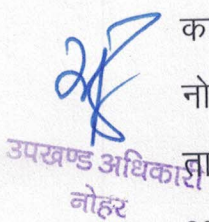 क
नो
उपखण्ड अधिकारी
ता
नोहर